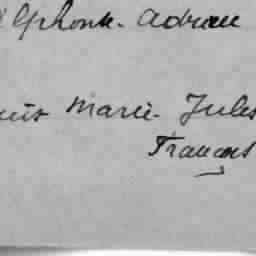 Alphonse. Adrien
Marie. Jules
François